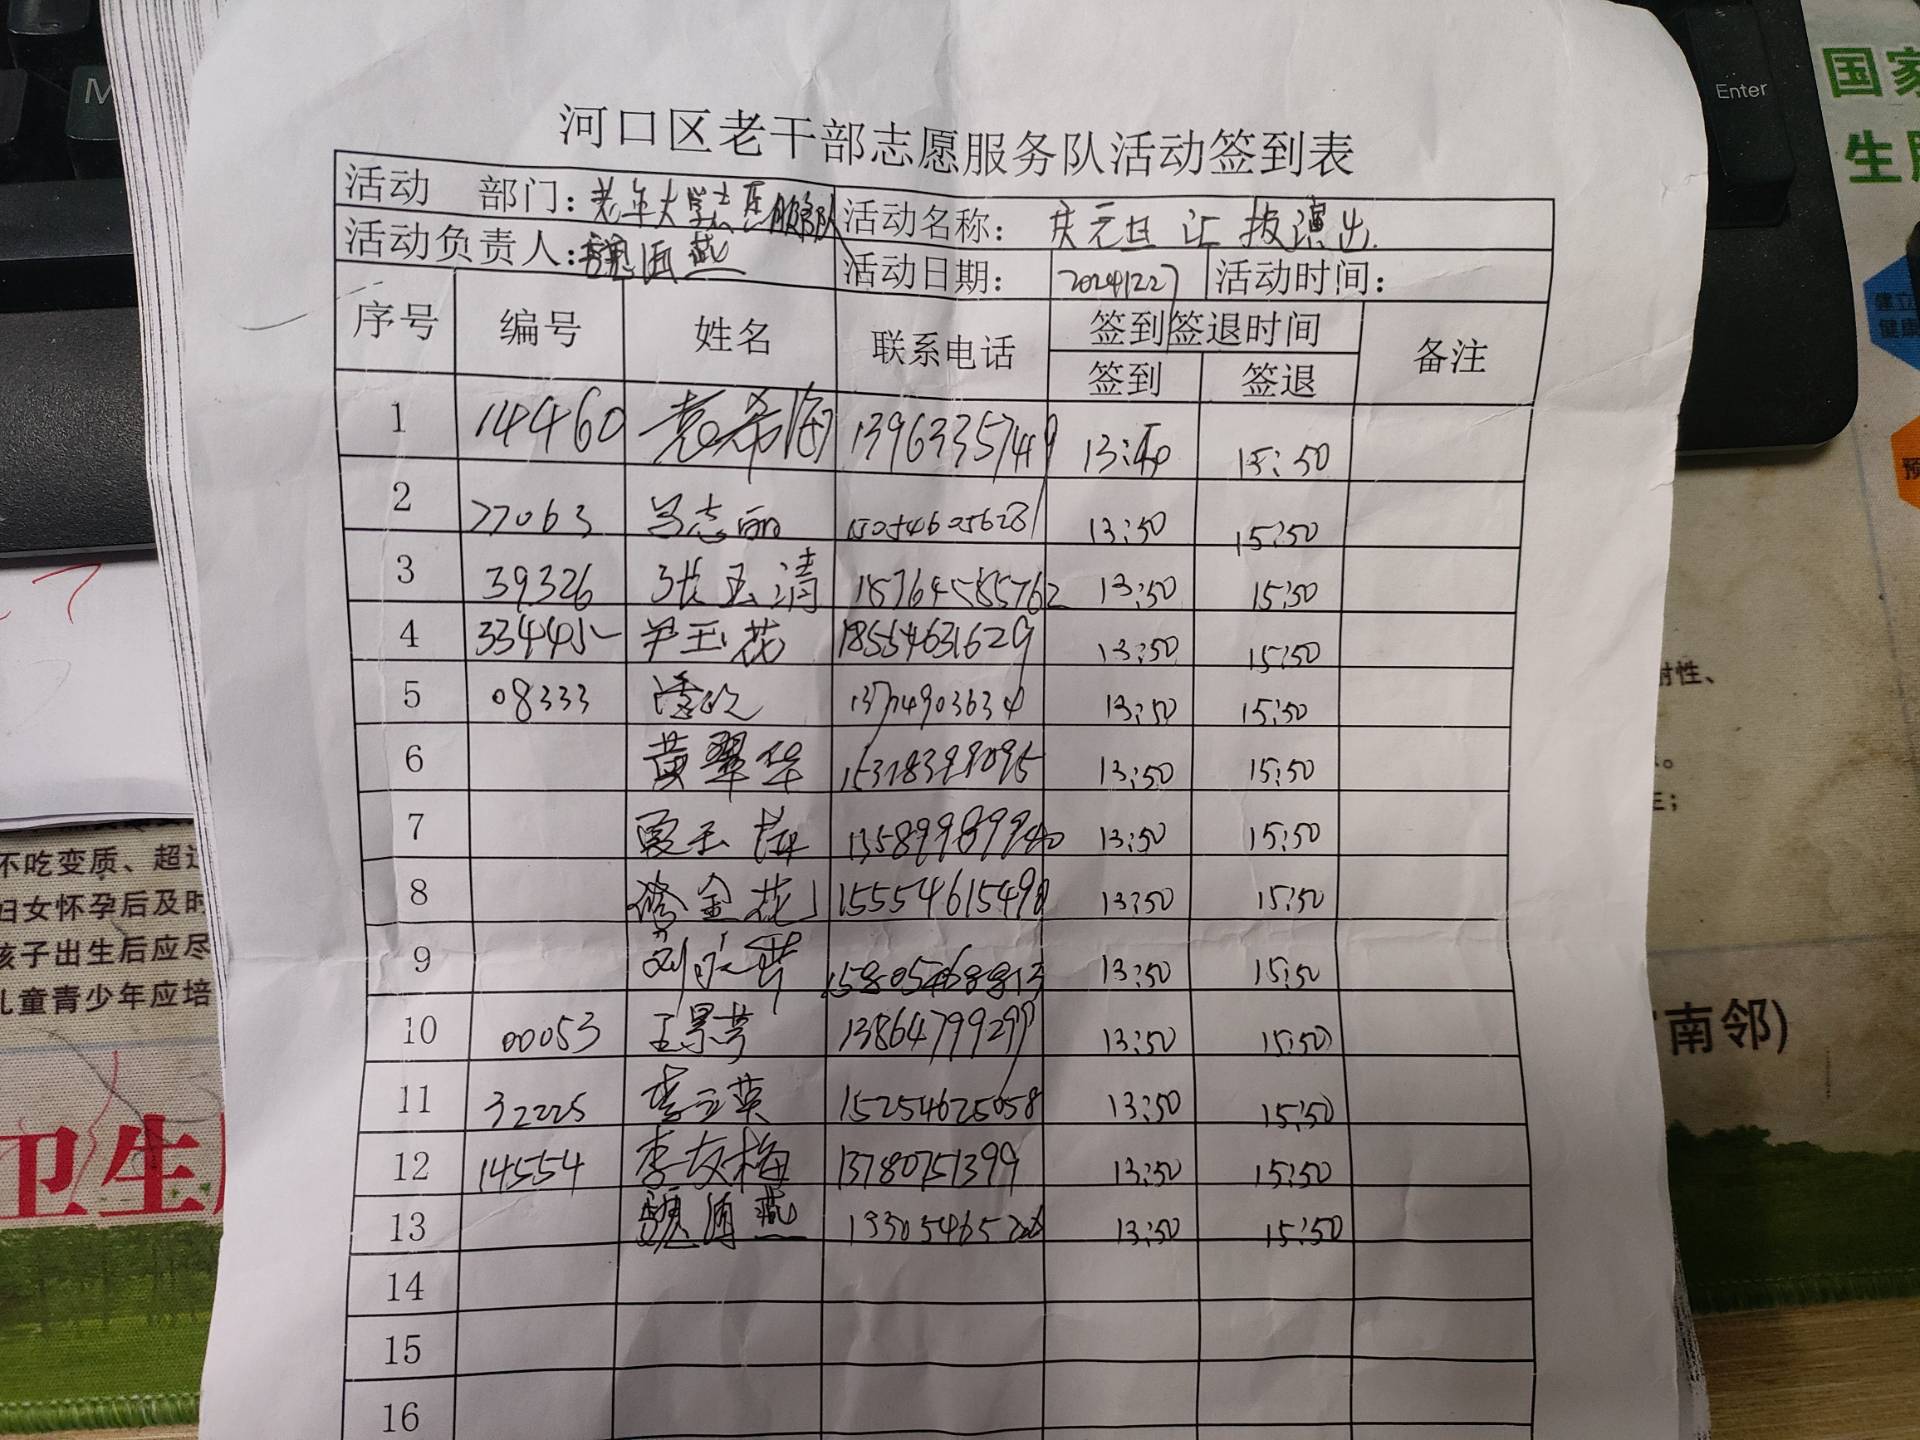 Enter
M
国家
河口区老干部志愿服务队活动签到表
活动 部门：老年大学志愿服务队 活动名称： 庆元旦汇报演出
活动负责人：魏海燕 活动日期： 20241227 活动时间：
序号 编号 姓名 联系电话 签到签退时间 备注
签到 签退
1 14460 袁希海 13963357449 13:50 15:50
2 77063 吕志丽 13:50 15:50
3 39326 张玉清 15764585762 13:50 15:50
4 尹玉花 18554631629 13:50 15:50
5 08333 13:50 15:50
6 黄翠华 13:50 15:50
7 13589989940 13:50 15:50
8 修金花 15554615498 13:50 15:50
9 13:50 15:50
10 00053 王景芳 13864799299 13:50 15:50
11 32225 李云英 15254625058 13:50 15:50
12 14554 李友梅 13780751399 13:50 15:50
13 魏海燕 13:50 15:50
14
15
16
不吃变质、超过
妇女怀孕后及时
孩子出生后应尽
儿童青少年应培
卫生
南邻)